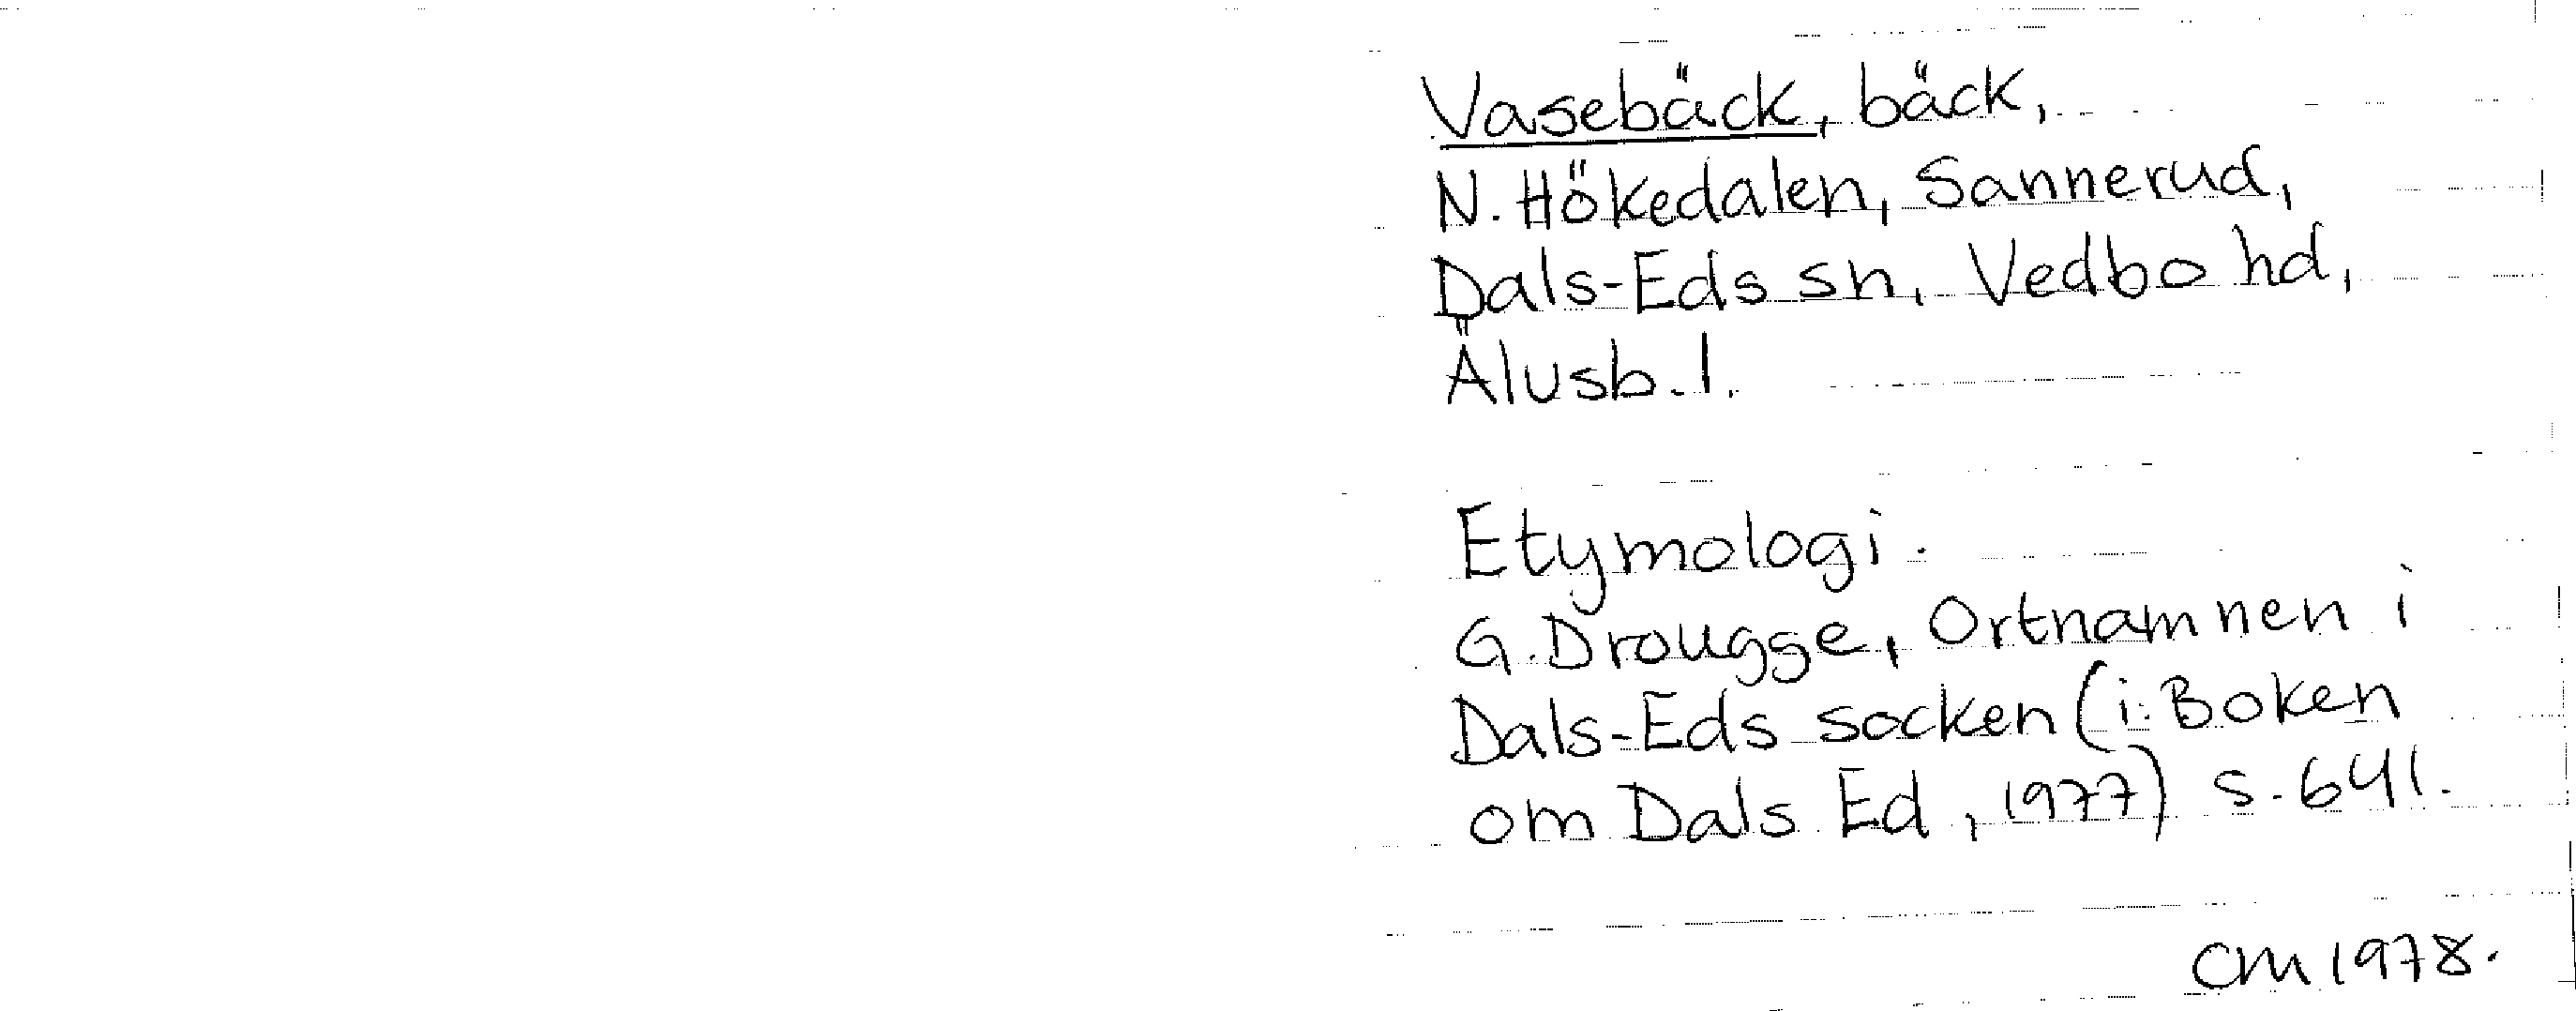 Vasebäck, bäck,
N. Hökedalen, Sannerud,
Dals-Eds sn, Vedbo hd,
Älvsb. l.
Etymologi.
G. Drougge, Ortnamnen i
Dals-Eds socken (i: Boken
om Dals Ed, 1977) s. 641.
CM 1978.